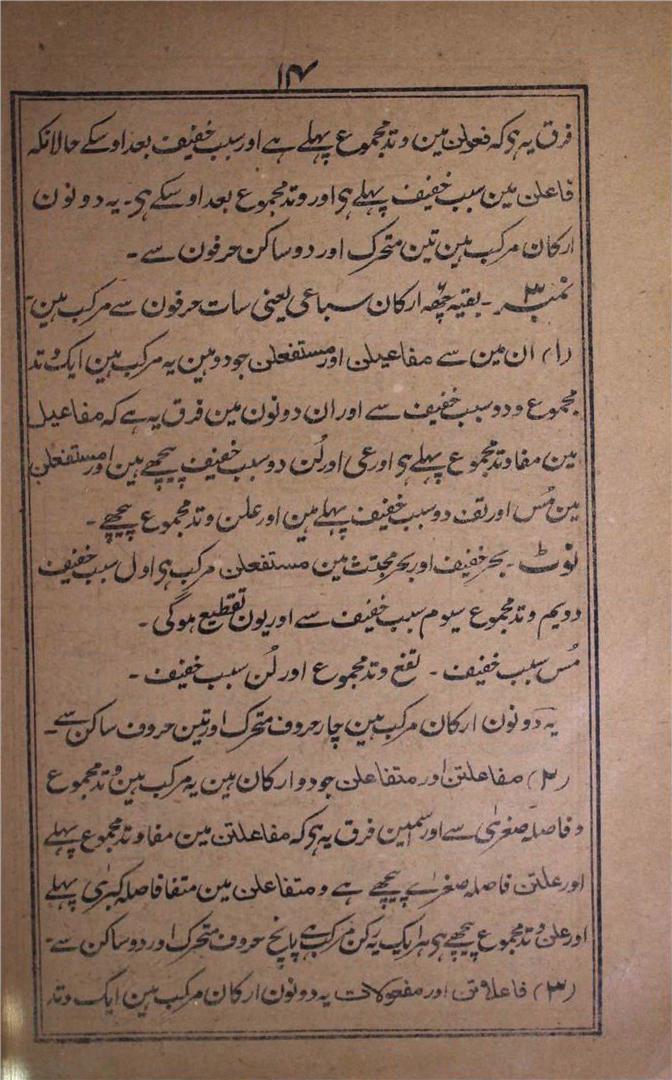 ۱۴
فرق یہ ہی کہ فعولن مین وتد مجموع پہلے ہے اور سبب خفیف بعد اوسکے حالانکہ
فاعلن مین سبب خفیف پہلے ہی اور وتد مجموع بعد اوسکے ہی۔ یہ دونون
ارکان مرکب ہین تین متحرک اور دو ساکن حرفون سے۔
نمبر ۳۔ بقیہ چھہ ارکان سباعی یعنی سات حرفون سے مرکب ہین۔
(۱) ان مین سے مفاعیلن اور مستفعلن جو دو ہین یہ مرکب ہین ایک وتد
مجموع و دو سبب خفیف سے اور ان دونون مین فرق یہ ہے کہ مفاعیل
مین مفا وتد مجموع پہلے ہی اور عی اور لُن دو سبب خفیف پیچھے ہین اور مستفعلن
مین مُس اور تف دو سبب خفیف پہلے ہین اور علن وتد مجموع پیچھے۔
نوٹ۔ بحر خفیف اور بحر مجتث مین مستفعلن مرکب ہی اول سبب خفیف
دویم وتد مجموع سیوم سبب خفیف سے اور یون تقطیع ہوگی۔
مُس سبب خفیف۔ تفع وتد مجموع اور لُن سبب خفیف۔
یہ دونون ارکان مرکب ہین چار حروف متحرک اور تین حروف ساکن سے۔
(۲) مفاعلتن اور متفاعلن جو دو ارکان ہین یہ مرکب ہین وتد مجموع
و فاصلہ صغریٰ سے اور اسمین فرق یہ ہی کہ مفاعلتن مین مفا وتد مجموع پہلے
اور علتن فاصلہ صغرےٰ پیچھے ہے و متفاعلن مین متفا فاصلہ کبریٰ پہلے
اور علن وتد مجموع پیچھے ہی ہر ایک یہ رکن مرکب ہے پانچ حروف متحرک اور دو ساکن سے۔
(۳) فاعلاتن اور مفعولات یہ دونون ارکان مرکب ہین ایک وتد